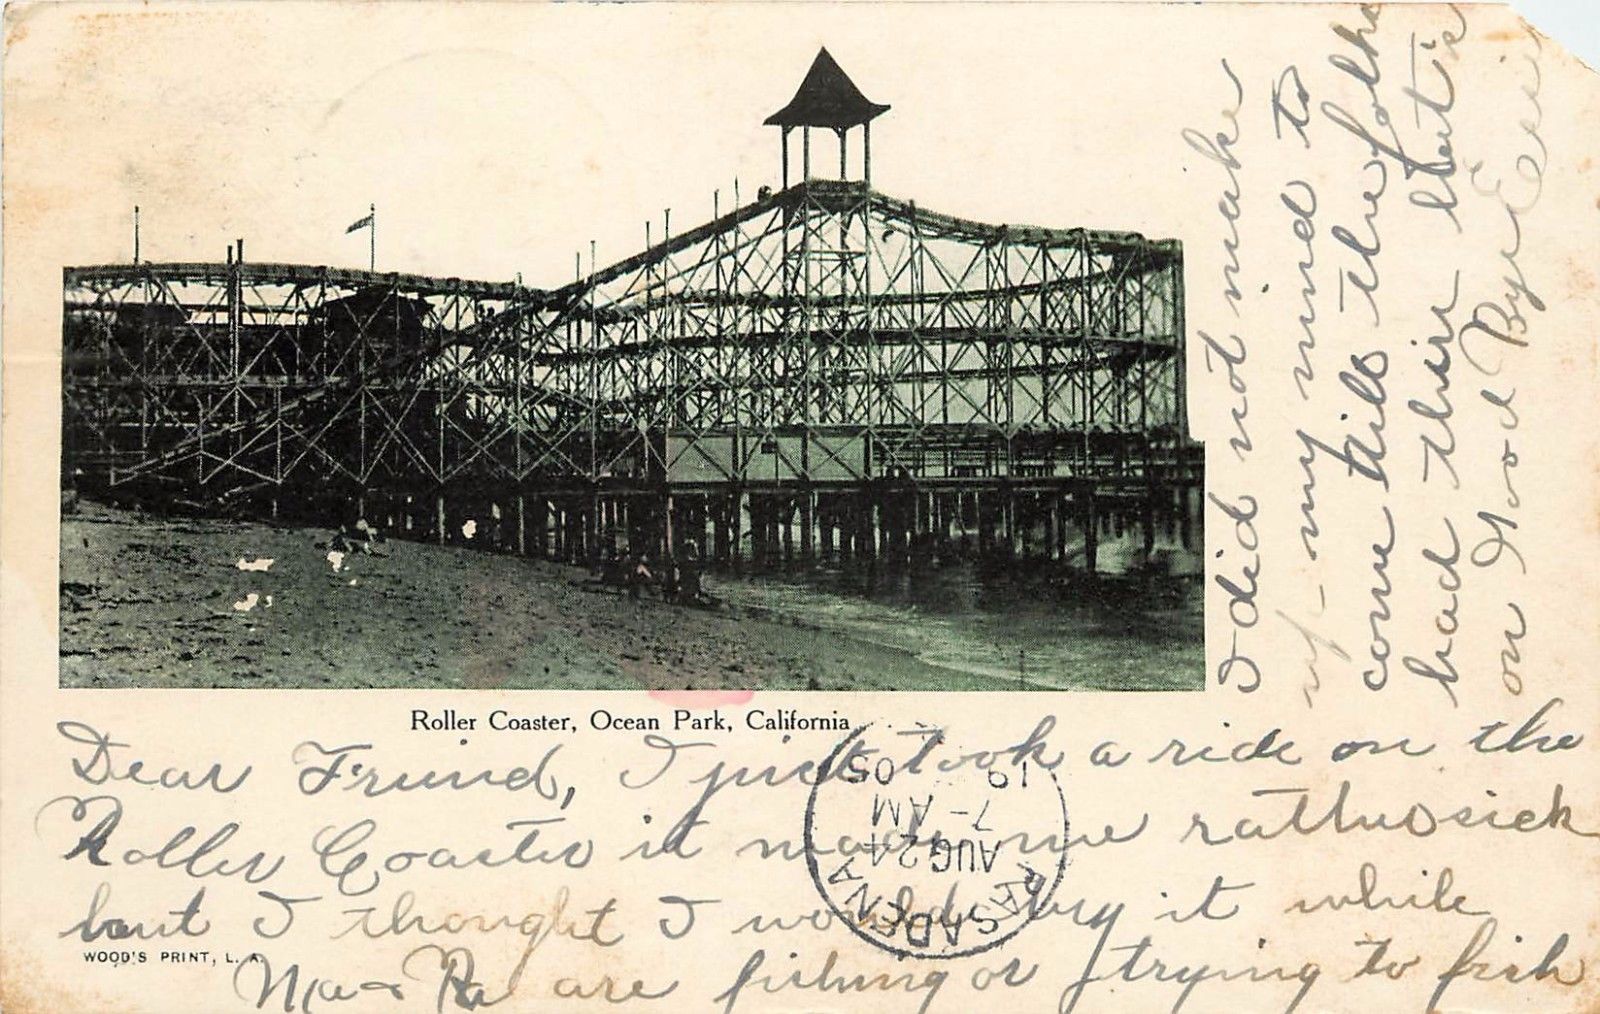 Roller Coaster, Ocean Park, California
Dear Freind, I just took a ride on the
Roller Coaster it made me rather sick
but I thought I would try it while
Ma & Pa are fishing or trying to fish
WOOD'S PRINT, L. A.
I did not make
up my mind to
come till the folks
had their hearts
on Good Bye
PASADENA
AUG 24
7-AM
1905